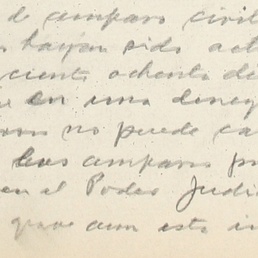 de amparo civil
hayan sido act
ciento ochenta dí
en una deneg
no puede ca
los amparo p
en al Poder Judi
grave aun esta in